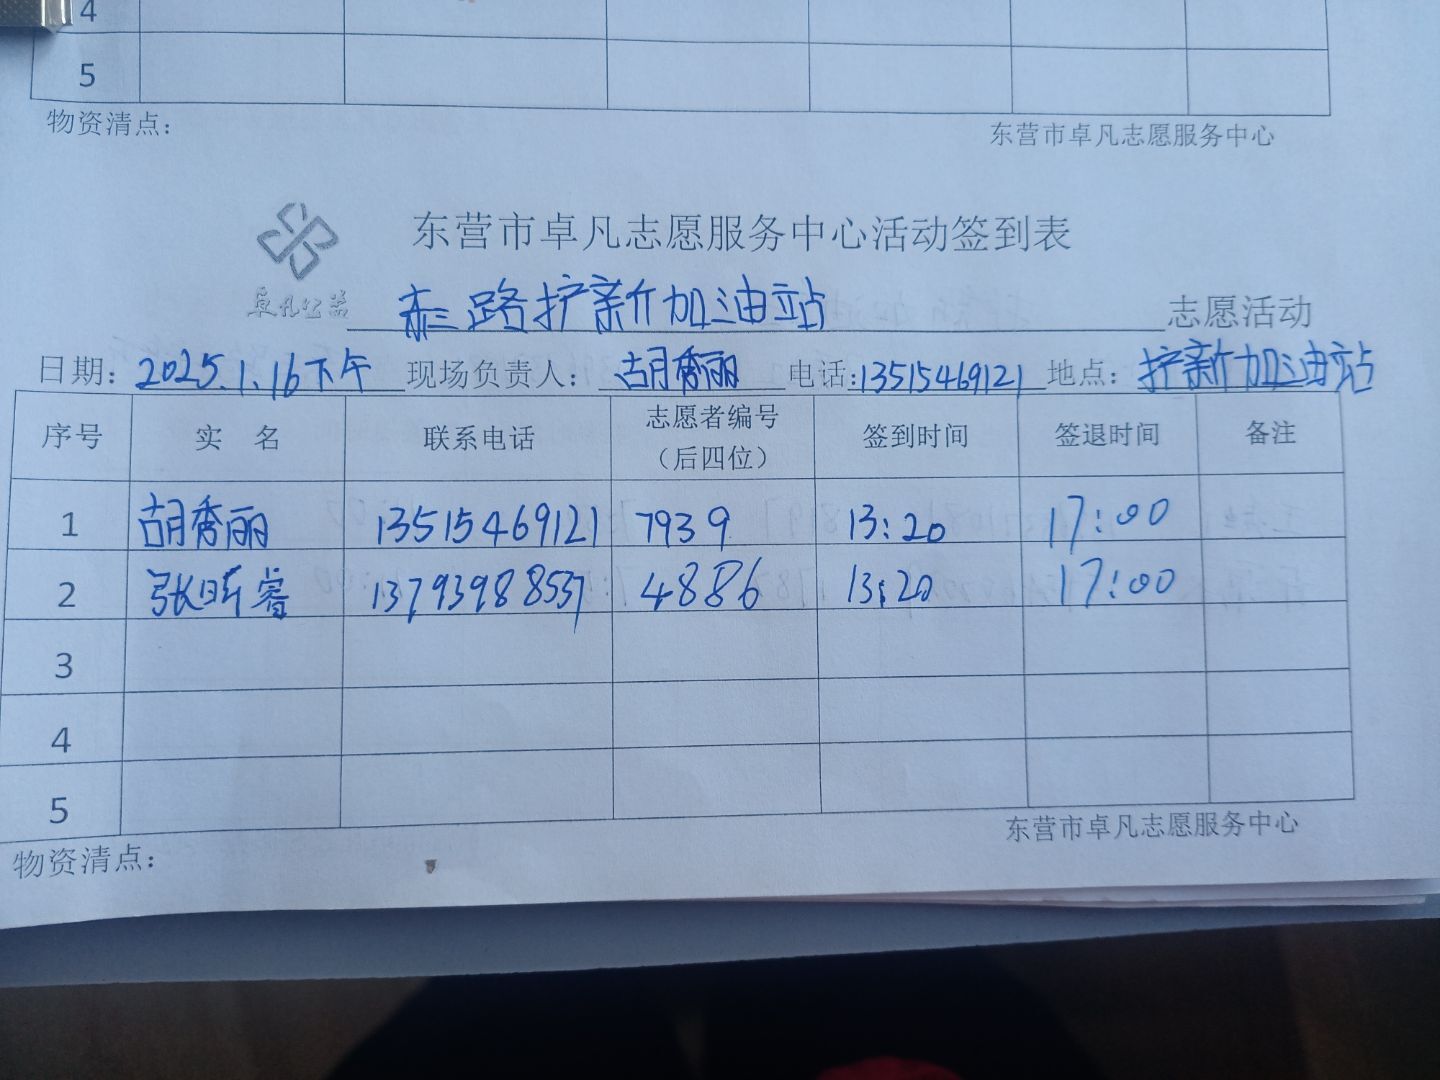 4
5
物资清点：
东营市卓凡志愿服务中心
东营市卓凡志愿服务中心活动签到表
卓凡公益
路护新加油站 志愿活动
日期：2025.1.16下午 现场负责人：胡秀丽 电话：13515469121 地点：护新加油站
序号 实 名 联系电话 志愿者编号（后四位） 签到时间 签退时间 备注
1 胡秀丽 13515469121 7939 13:20 17:00
2 张昕睿 13793988537 4886 13:20 17:00
3
4
5
东营市卓凡志愿服务中心
物资清点：